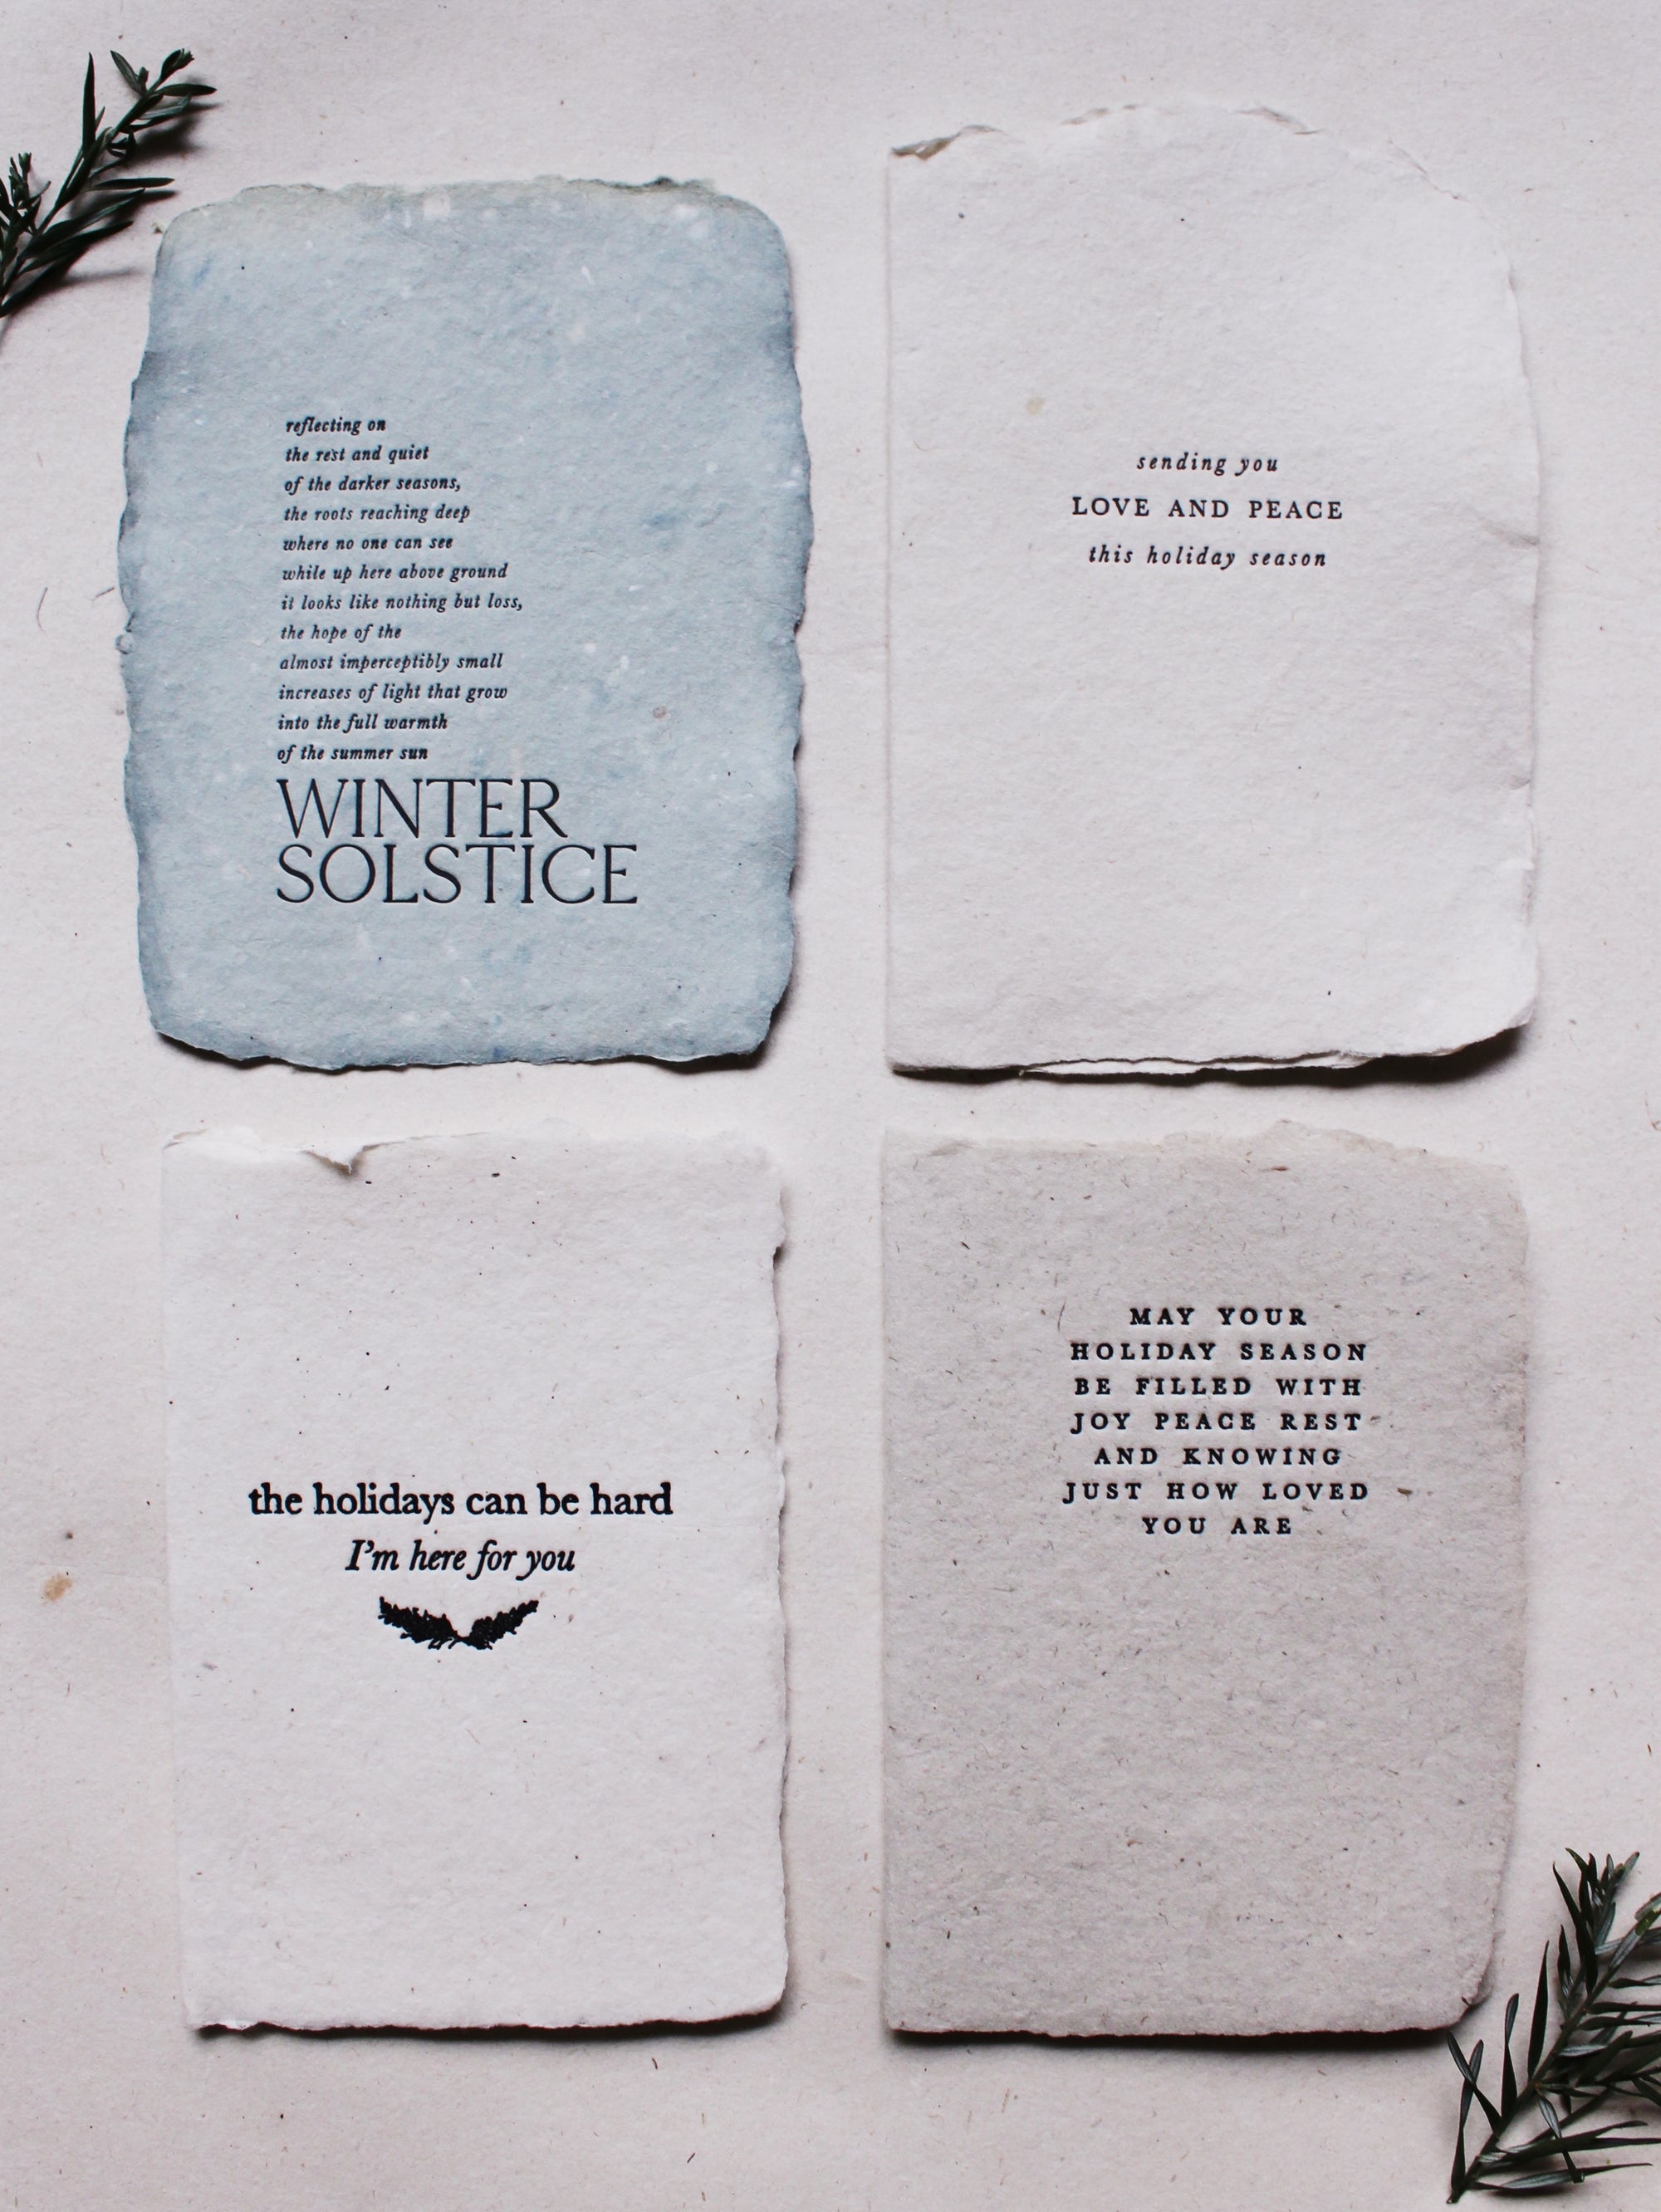 reflecting on
the rest and quiet
of the darker seasons,
the roots reaching deep
where no one can see
while up here above ground
it looks like nothing but loss,
the hope of the
almost imperceptibly small
increases of light that grow
into the full warmth
of the summer sun
WINTER
SOLSTICE
sending you
LOVE AND PEACE
this holiday season
the holidays can be hard
I'm here for you
MAY YOUR
HOLIDAY SEASON
BE FILLED WITH
JOY PEACE REST
AND KNOWING
JUST HOW LOVED
YOU ARE